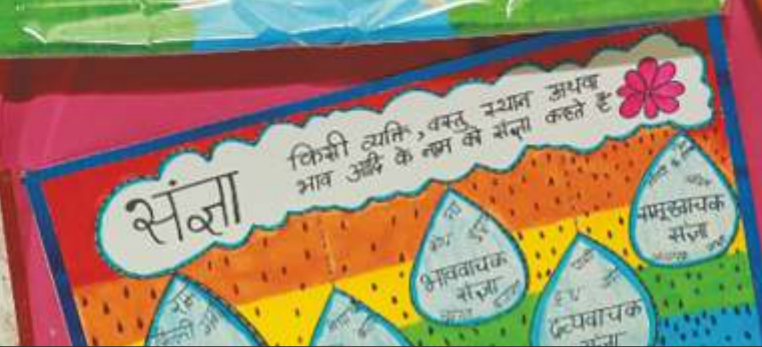 संज्ञा
किसी व्यक्ति, वस्तु स्थान अथवा
भाव आदि के नाम को संज्ञा कहते है
भाववाचक
संज्ञा
समूहवाचक
संज्ञा
द्रव्यवाचक
संज्ञा